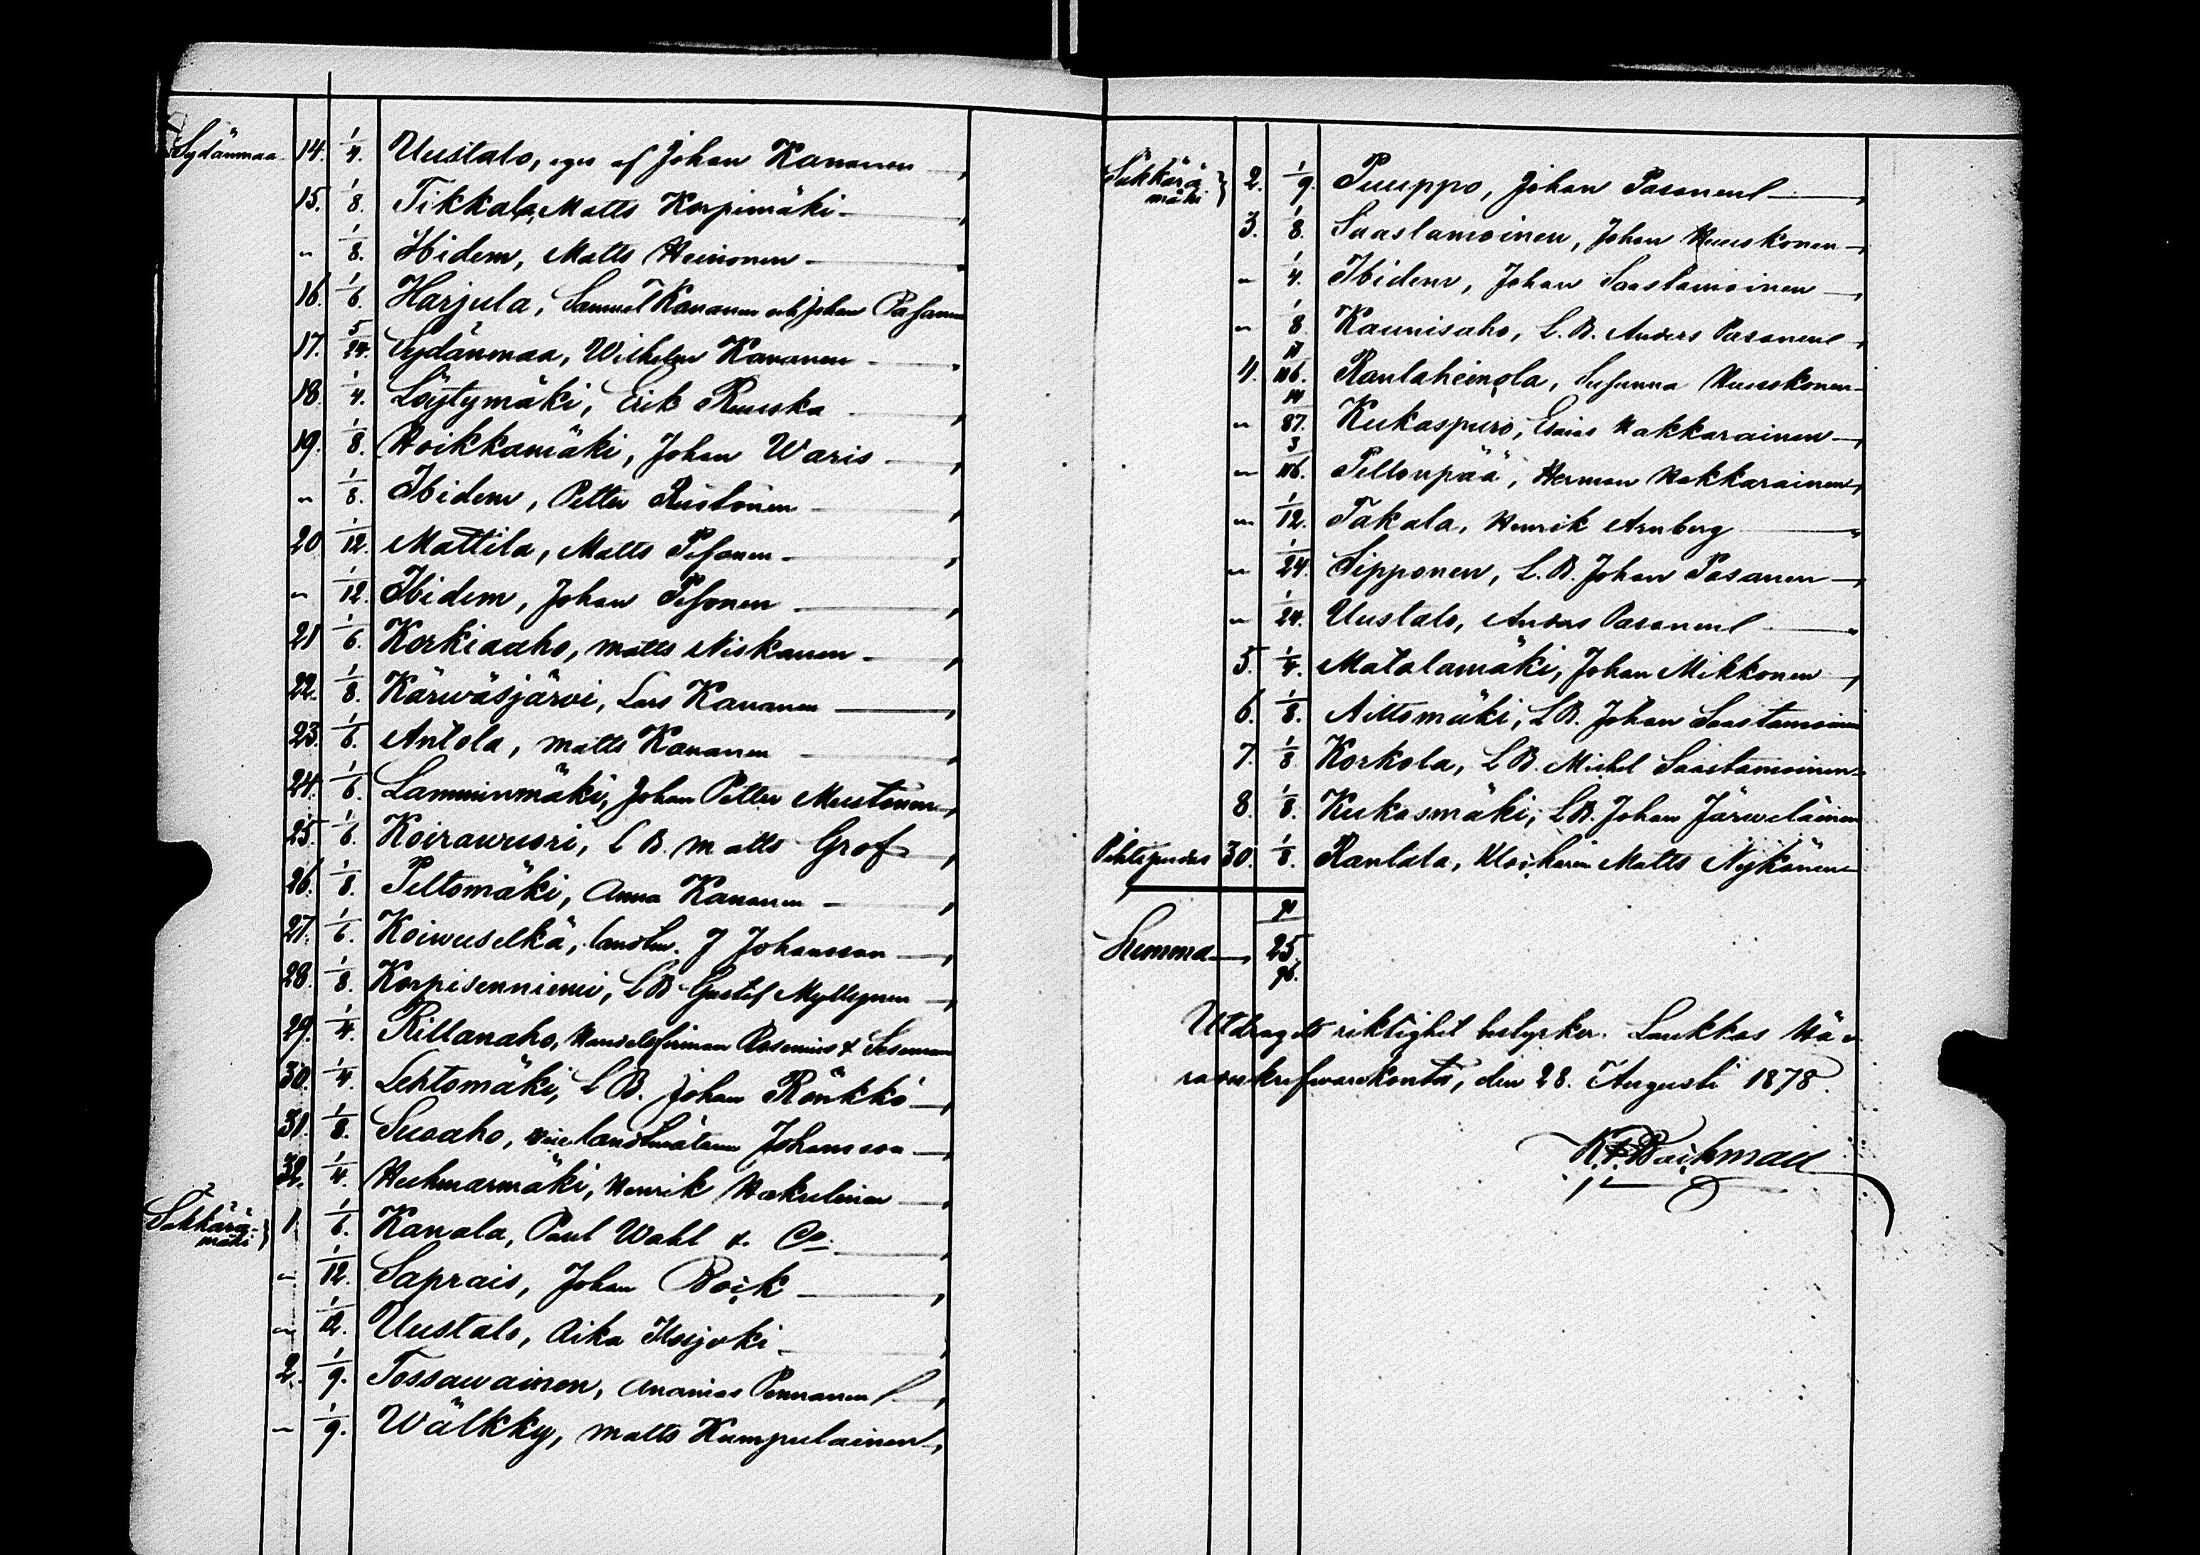 Sydänmaa 14. 1/4. Uustalo, eges af Johan Kananen
15. 1/8. Tikkala, Matts Korpimäki
" 1/8. Ibidem, Matts Heinonen
16. 1/6. Harjula, Samuel Kananen och Johan Pasanen
17. 5/24. Sydänmaa, Wilhelm Kananen
18. 1/4. Löytymäki, Erik Ruuska
19. 1/8. Hoikkamäki, Johan Waris
" 1/8. Ibidem, Petter Rustonen
20 1/12. Mattila, Matts Pesonen
" 1/12. Ibidem, Johan Pesonen
21 1/6. Korkiaaho, Matts Niskanen
22. 1/8. Kärwäsjärvi, Lars Kananen
23. 1/6. Antola, Matts Kananen
24. 1/6. Lamminmäki, Johan Petter Mustonen
25. 1/6. Koirawuori, L B. Matts Grof
26. 1/8. Peltomäki, Anna Kananen
27. 1/6. Koiwuselkä, landtm. J Johansson
28. 1/8. Korpisenniemi, L B Gustaf Myllynen
29. 1/4. Rillanaho, Handelsfirman Rosenius &
30. 1/4. Lehtomäki, L B. Johan Rönkkö
31. 1/8. Suoaho, vice landtmätaren Johansson
32. 1/4. Huhmarmäki, Henrik Hakulinen
Säkkärä-mäki 1. 1/6. Kanala, Paul Wahl & Co.
" 1/12. Saprais, Johan Boik
" 1/12. Uustalo, Aika
2. 1/9. Tossawainen, Ananias Pennanen
" 1/9. Wälkky, Matts Kumpulainen
Säkkärä-mäki 2. 1/9. Puuppo, Johan Pasanen
3. 1/8. Saastamoinen, Johan Huuskonen
" 1/4. Ibidem, Johan Saastamoinen
" 1/8. Kaunisaho, L. B. Anders Pasanen
4. 11/116. Rantaheinola, Susanna Huuskonen
" 14/87. Kukaspuro, Esaias Hakkarainen
" 3/116. Peltonpää, Herman Hakkarainen
" 1/12. Takala, Henrik Arnberg
" 1/24. Sipponen, L. B. Johan Pasanen
" 1/24. Uustalo, Anders Pasanen
5. 1/4. Matalamäki, Johan Mikkonen
6. 1/8. Aittomäki, L B. Johan Saastamoinen
7. 1/8 Korkola, L B. Michel Saastamoinen
8. 1/8. Kukasmäki, L B. Johan Järweläinen
Pihtipudas 30. 1/8. Rantala, Klockaren Matts Nykänen
Summa 25 91/96.
Utdragets riktighet bestyrker. Laukkas Hä-
radsskrifvarekontor, den 28. Augusti 1878.
K. F. Backman